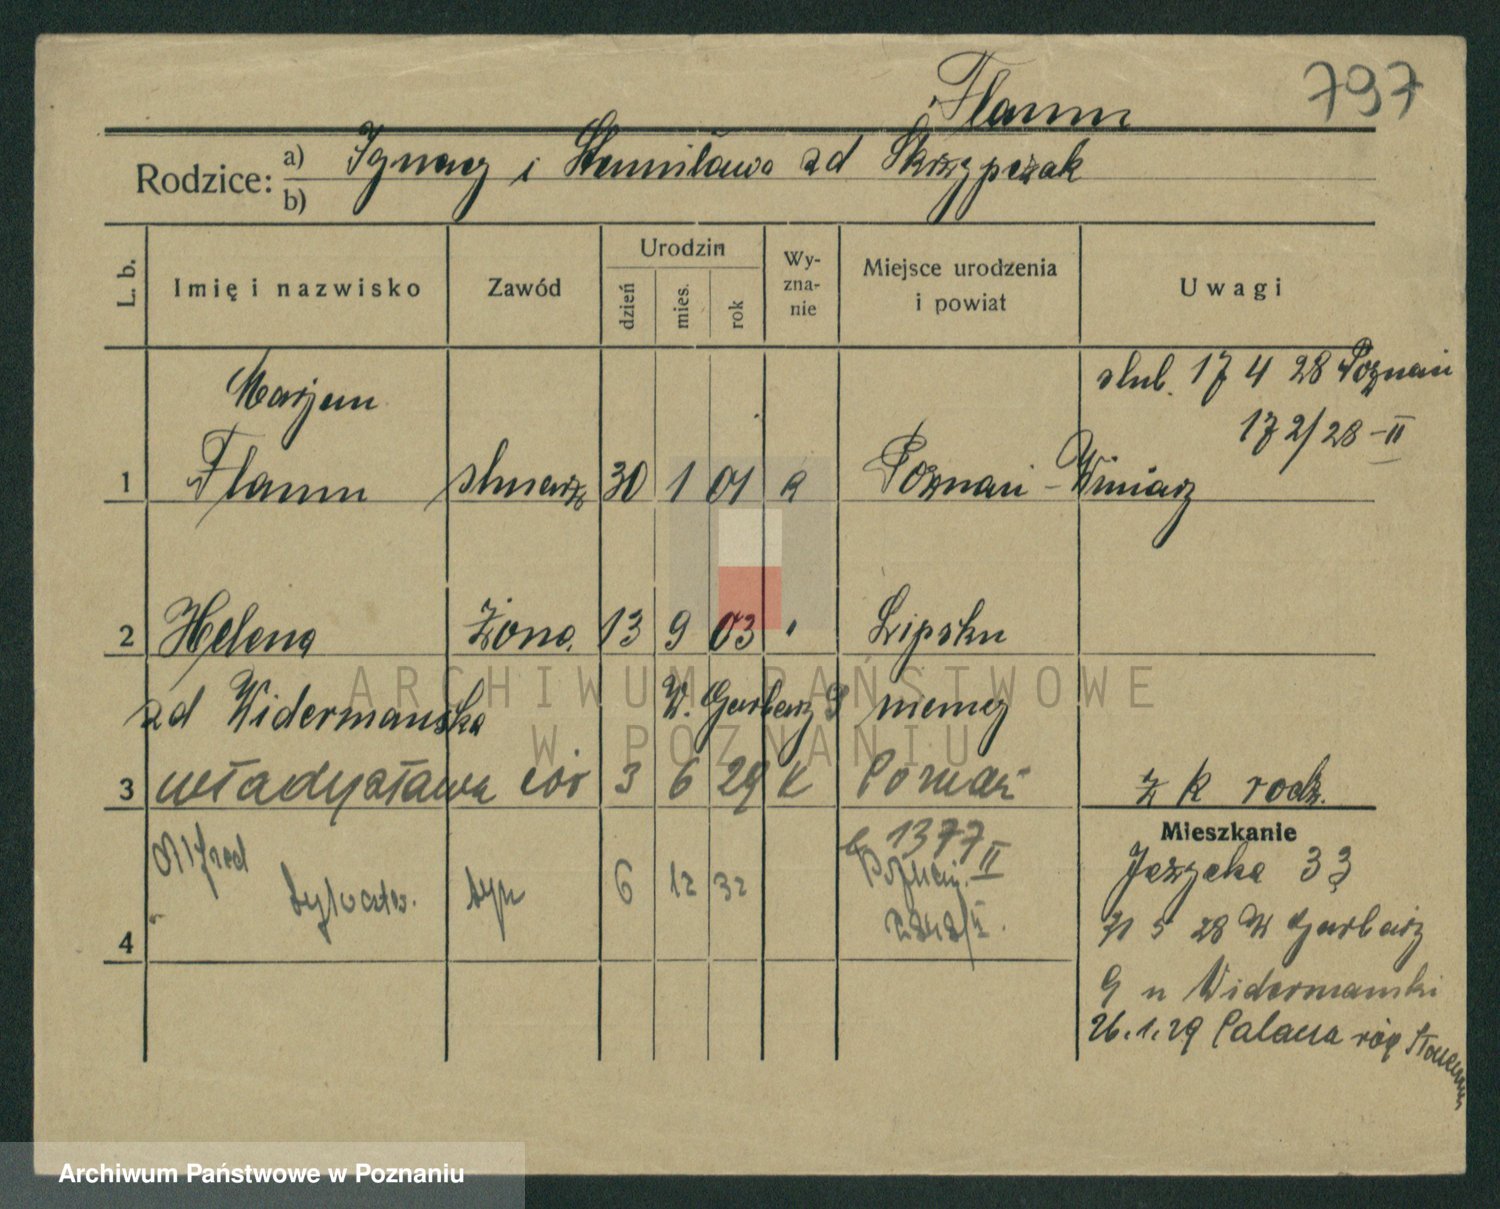 Flamm
797
Rodzice:
a) Ignacy i Stanisława zd Skrzypczak
b)
L. b.
Imię i nazwisko
Zawód
Urodzin
dzień
mies.
rok
Wy-
zna-
nie
Miejsce urodzenia
i powiat
Uwagi
Marjan
ślub. 17 4 28 Poznań
172/28-II
1 Flamm ślusarz 30 1 01 Poznań - Winiary
2 Helena żona 13 9 03 " Lipsku
zd Widermańska W. Garbary 9 niemcy
3 Władysława cór 3 6 29 K Poznań z k rodz.
1377
II
Mieszkanie
Alfred
Sylwester syn 6 12 32 Poznań
4
Jeżycka 33
28 W Garbary
9 u Widermański
26.1.29 Palacza róg
ARCHIWUM PAŃSTWOWE
W POZNANIU
Archiwum Państwowe w Poznaniu